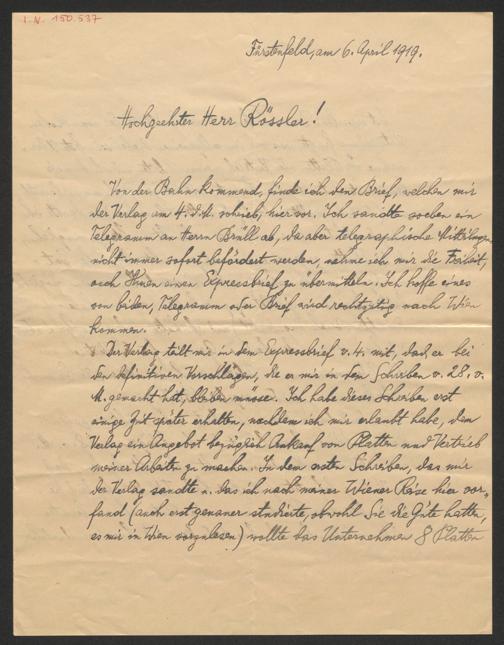 I.N. 150.537
Fürstenfeld, am 6. April 1919.
Hochgeehrter Herr Rössler!
Von der Bahn kommend, finde ich den Brief, welchen mir
der Verlag am 4. d. M. schrieb, hier vor. Ich sandte soeben ein
Telegramm an Herrn Brüll ab, da aber telegraphische Mitteilungen
nicht immer sofort befördert werden, nehme ich mir die Freiheit,
auch Ihnen einen Expressbrief zu übermitteln. Ich hoffe eines
von beiden, Telegramm oder Brief wird rechtzeitig nach Wien
kommen.
Der Verlag teilt mir in dem Expressbrief v. 4. mit, dass er bei
den definitiven Vorschlägen, die er mir in dem Schreiben v. 28. v.
M. gemacht hat, bleiben müsse. Ich habe dieses Schreiben erst
einige Zeit später erhalten, nachdem ich mir erlaubt habe, dem
Verlag ein Angebot bezüglich Ankauf von Platten und Vertrieb
meiner Arbeiten zu machen. In dem ersten Schreiben, das mir
der Verlag sandte u. das ich nach meiner Wiener Reise hier vor-
fand (auch erst genauer studierte, obwohl Sie die Güte hatten,
es mir in Wien vorzulesen) wollte das Unternehmen 8 Platten